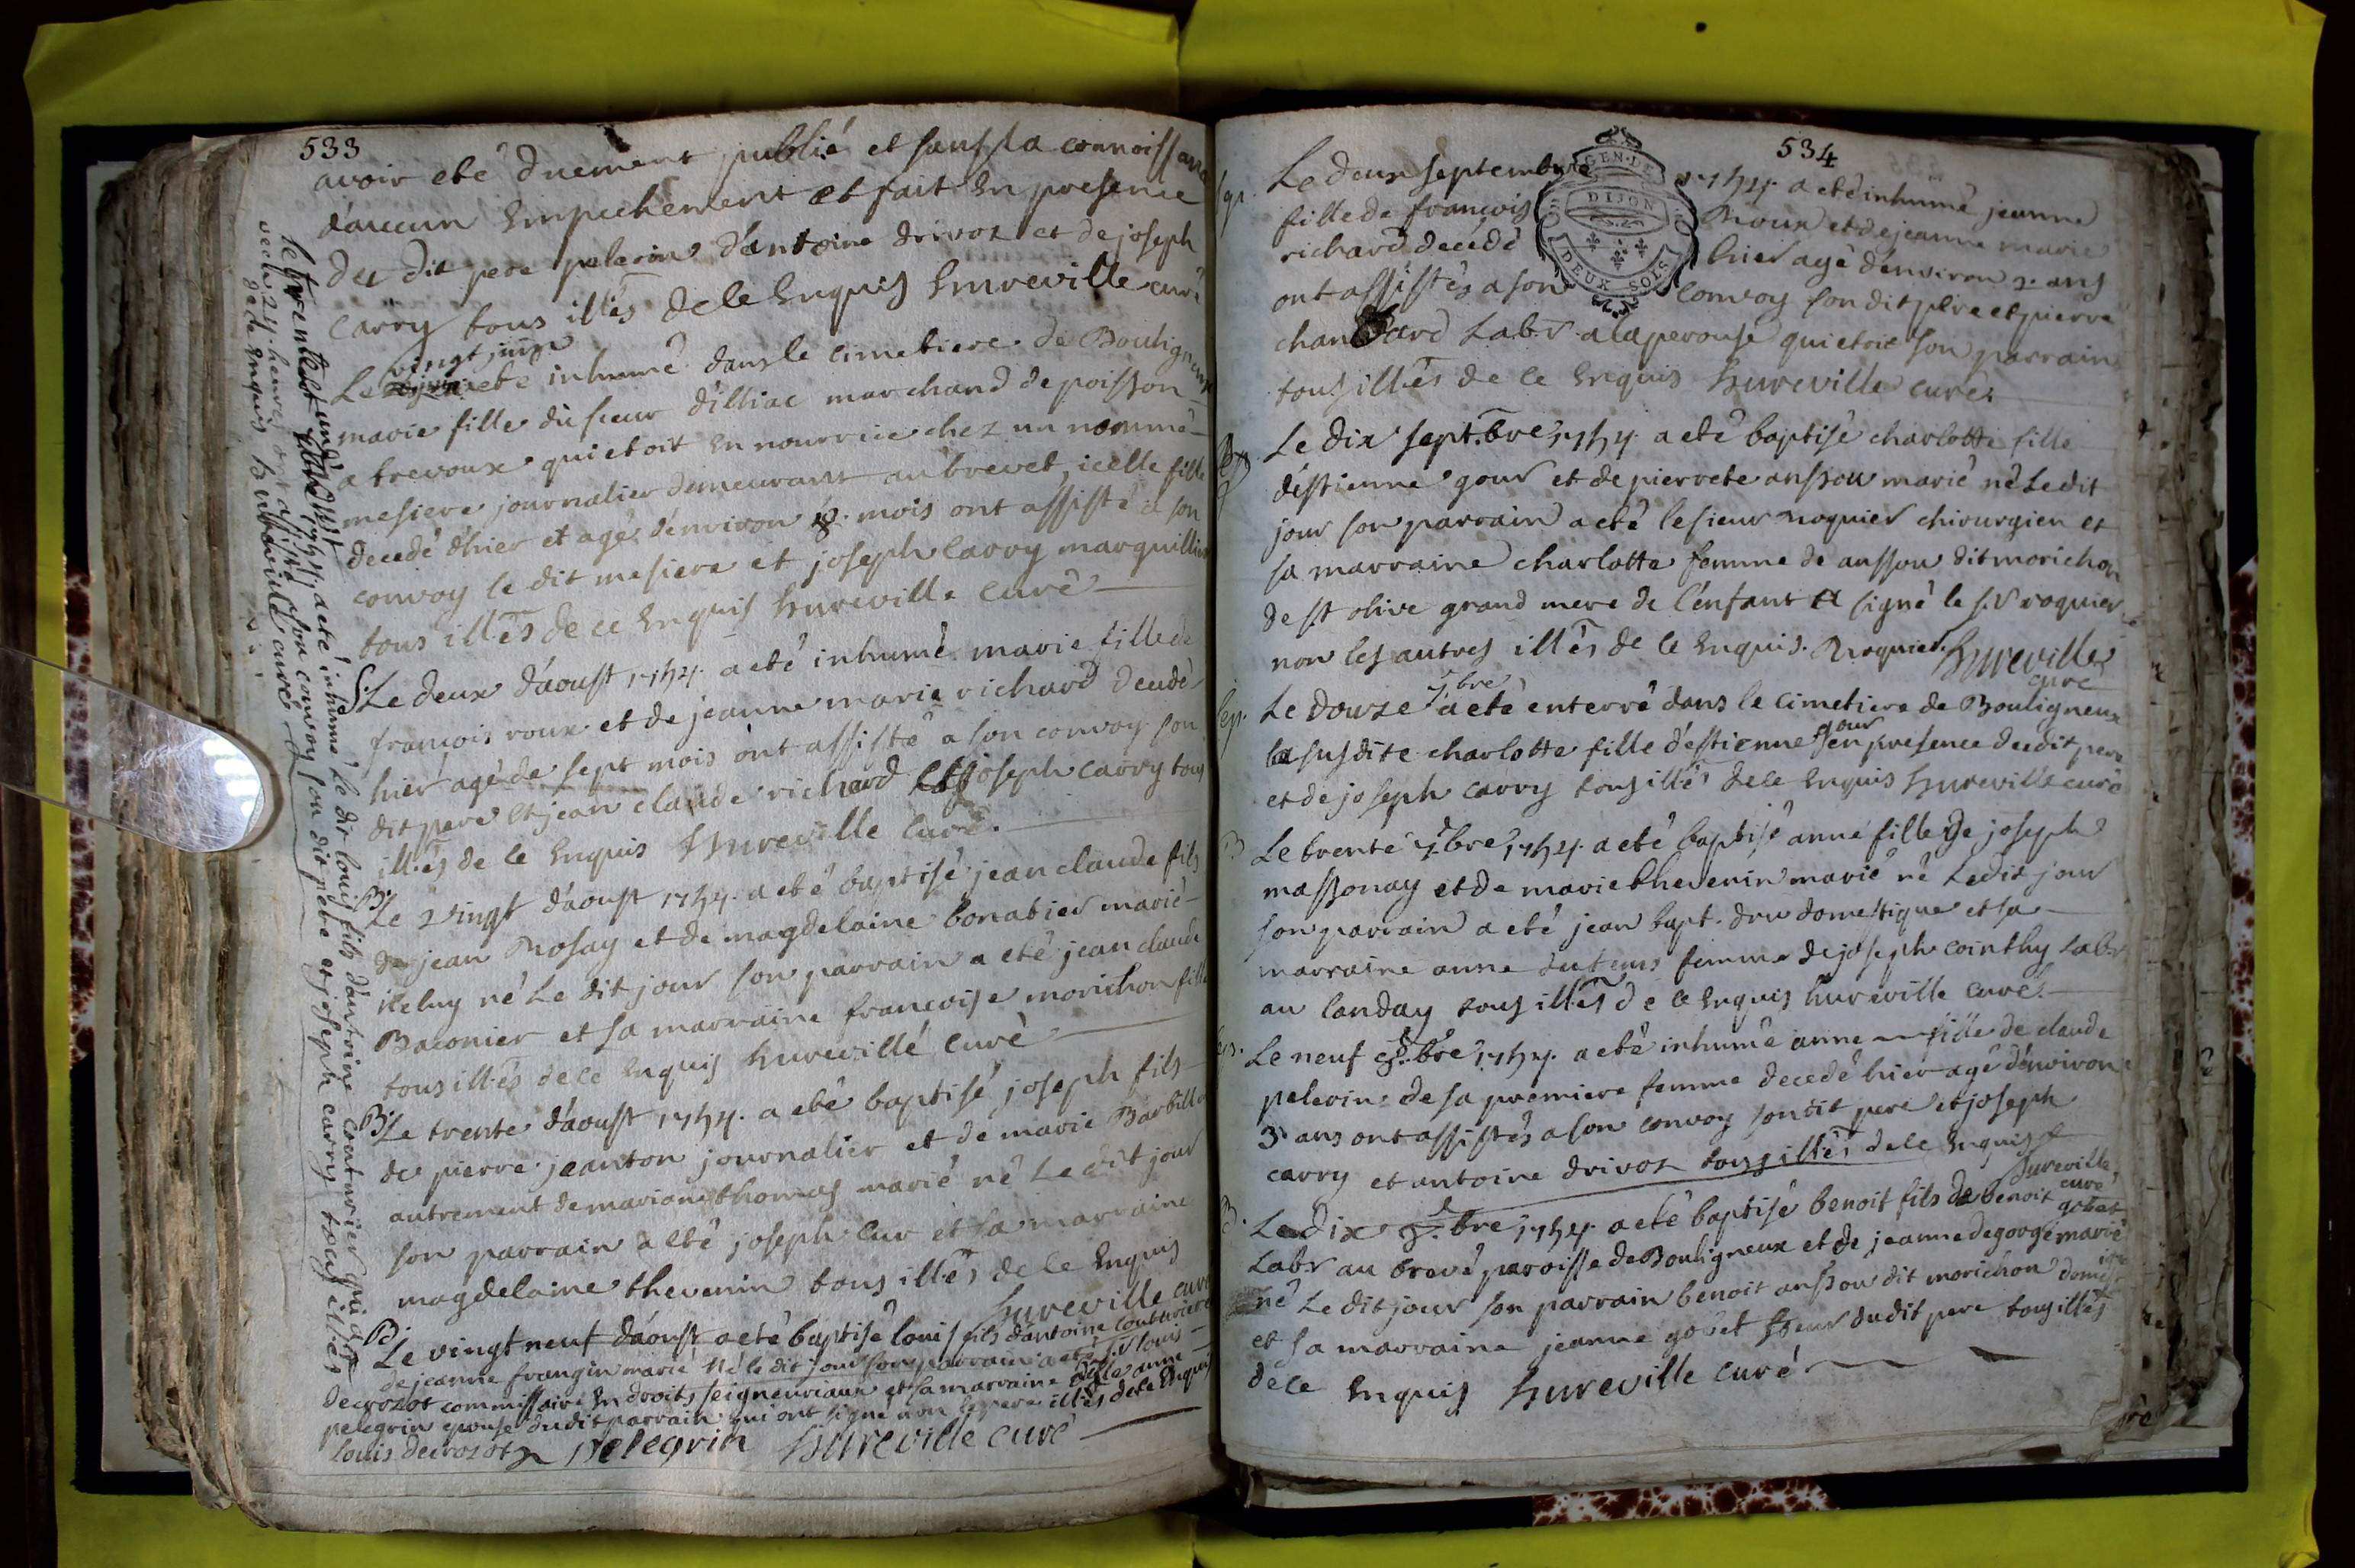 533
avoir eté duement publié et sans la connoissance
d'aucun Empechement et fait En presence
du dit pere pelerin d'antoine drivoz et de joseph
Carry tous illés de ce Enquis hureville curé
vingt juin
Le a eté inhumé dans le Cimetiere de Bouligneux
marie fille du sieur d'illiac marchand de poisson
a trevoux qui etoit En nourrice chez un nommé
mesiere journalier demeurant au brevet, icelle fille
decedé d'hier et agé d'environ 18. mois ont assisté a son
convoy le dit mesiere et joseph Carry marguillier
tous illés de ce Enquis hureville Curé
S. Le deux d'aoust 1754. a eté inhumé marie fille de
françois roux et de jeanne marie richard decedé
hier agé de sept mois ont assisté a son convoy son
dit pere Et jean claude richard Et joseph carry tous
illés de ce Enquis hureville Curé.
B. Le vingt d'aoust 1754. a eté baptisé jean claude fils
de jean Rosay et de magdelaine bonatier marié
iceluy né Le dit jour son parrain a eté jean claude
Baconier et sa marraine françoise morichon fille
tous illés de ce Enquis hureville Curé
B. Le trente d'aoust 1754. a eté baptisé joseph fils
de pierre jeanton journalier et de marie Barbillon
autrement de mariane thomas marié né Le dit jour
son parrain a eté joseph Cur et sa marraine
magdelaine thevenin tous illés de ce Enquis
hureville curé
B. Le vingt neuf d'aoust a eté baptisé louis fils d'antoine Couturier
de jeanne frangin marié Né le dit jour son parrain a eté s.r louis
decrozot commissaire En droits seigneuriaux et sa marraine anne
pelegrin epouse du dit parrain qui ont signé non le pere illés de ce Enquis
Louis decrozot pelegrin hureville curé
le trente et un d'aoust 1754. a eté inhumé le dit louis fils d'antoine Couturier qui a
vecu 24. heures ont assisté a son convoy son dit pere et joseph carry tous illés
de ce Enquis hureville curé
534
GEN. DE DIJON
DEUX SOLS
Sep. Le deux septembre 1754. a eté inhumé jeanne
fille de françois Roux et de jeanne marie
richard decedé hier agé d'environ 2. ans
ont assistés a son Convoy son dit pere et pierre
chanBard Lab.r a la perouse qui etoit son parrain
tous illés de ce Enquis hureville curé
B. Le dix sept.bre 1754. a eté baptisé charlotte fille
d'estienne gour et de pierrete anssou marié né Le dit
jour son parrain a eté le sieur roquier chirurgien et
sa marraine charlotte femme de anssou dit morichon
de st olive grand mere de l'enfant a signé le s.r roquier
non les autres illés de ce Enquis. Roquier. hureville
curé
7.bre
Sep. Le douze a eté enterré dans le cimetiere de Bouligneux
gour
la susdite charlotte fille d'estienne en presence du dit pere
et de joseph carry tous illés de ce Enquis hureville curé
B Le trente 7.bre 1754. a eté baptisé anne fille de joseph
massonay et de marie thevenin marié né Le dit jour
son parrain a eté jean bapt. dru domestique et sa
marraine anne dutems femme de joseph cointhy Lab.r
au landay tous illés de ce Enquis hureville Curé.
Sep. Le neuf 8.bre 1754. a eté inhumé anne fille de claude
pelerin de sa premiere femme decedé hier agé d'environ
3 ans ont assistés a son convoy son dit pere et joseph
carry et antoine drivoz tous illés de ce Enquis
hureville
curé
B. Le dix 8.bre 1754. a eté baptisé benoit fils de benoit gobet
Lab.r au brevé paroisse de Bouligneux et de jeanne degorgé marié
né Le dit jour son parrain benoit anssou dit morichon domestique
et sa marraine jeanne gobet soeur du dit pere tous illés
de ce Enquis hureville curé